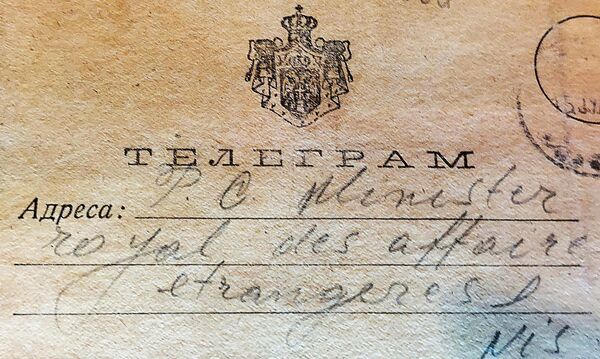 ТЕЛЕГРАМ
P. C. Minister
Адреса:
royal des affaire
etrangeres
Nis